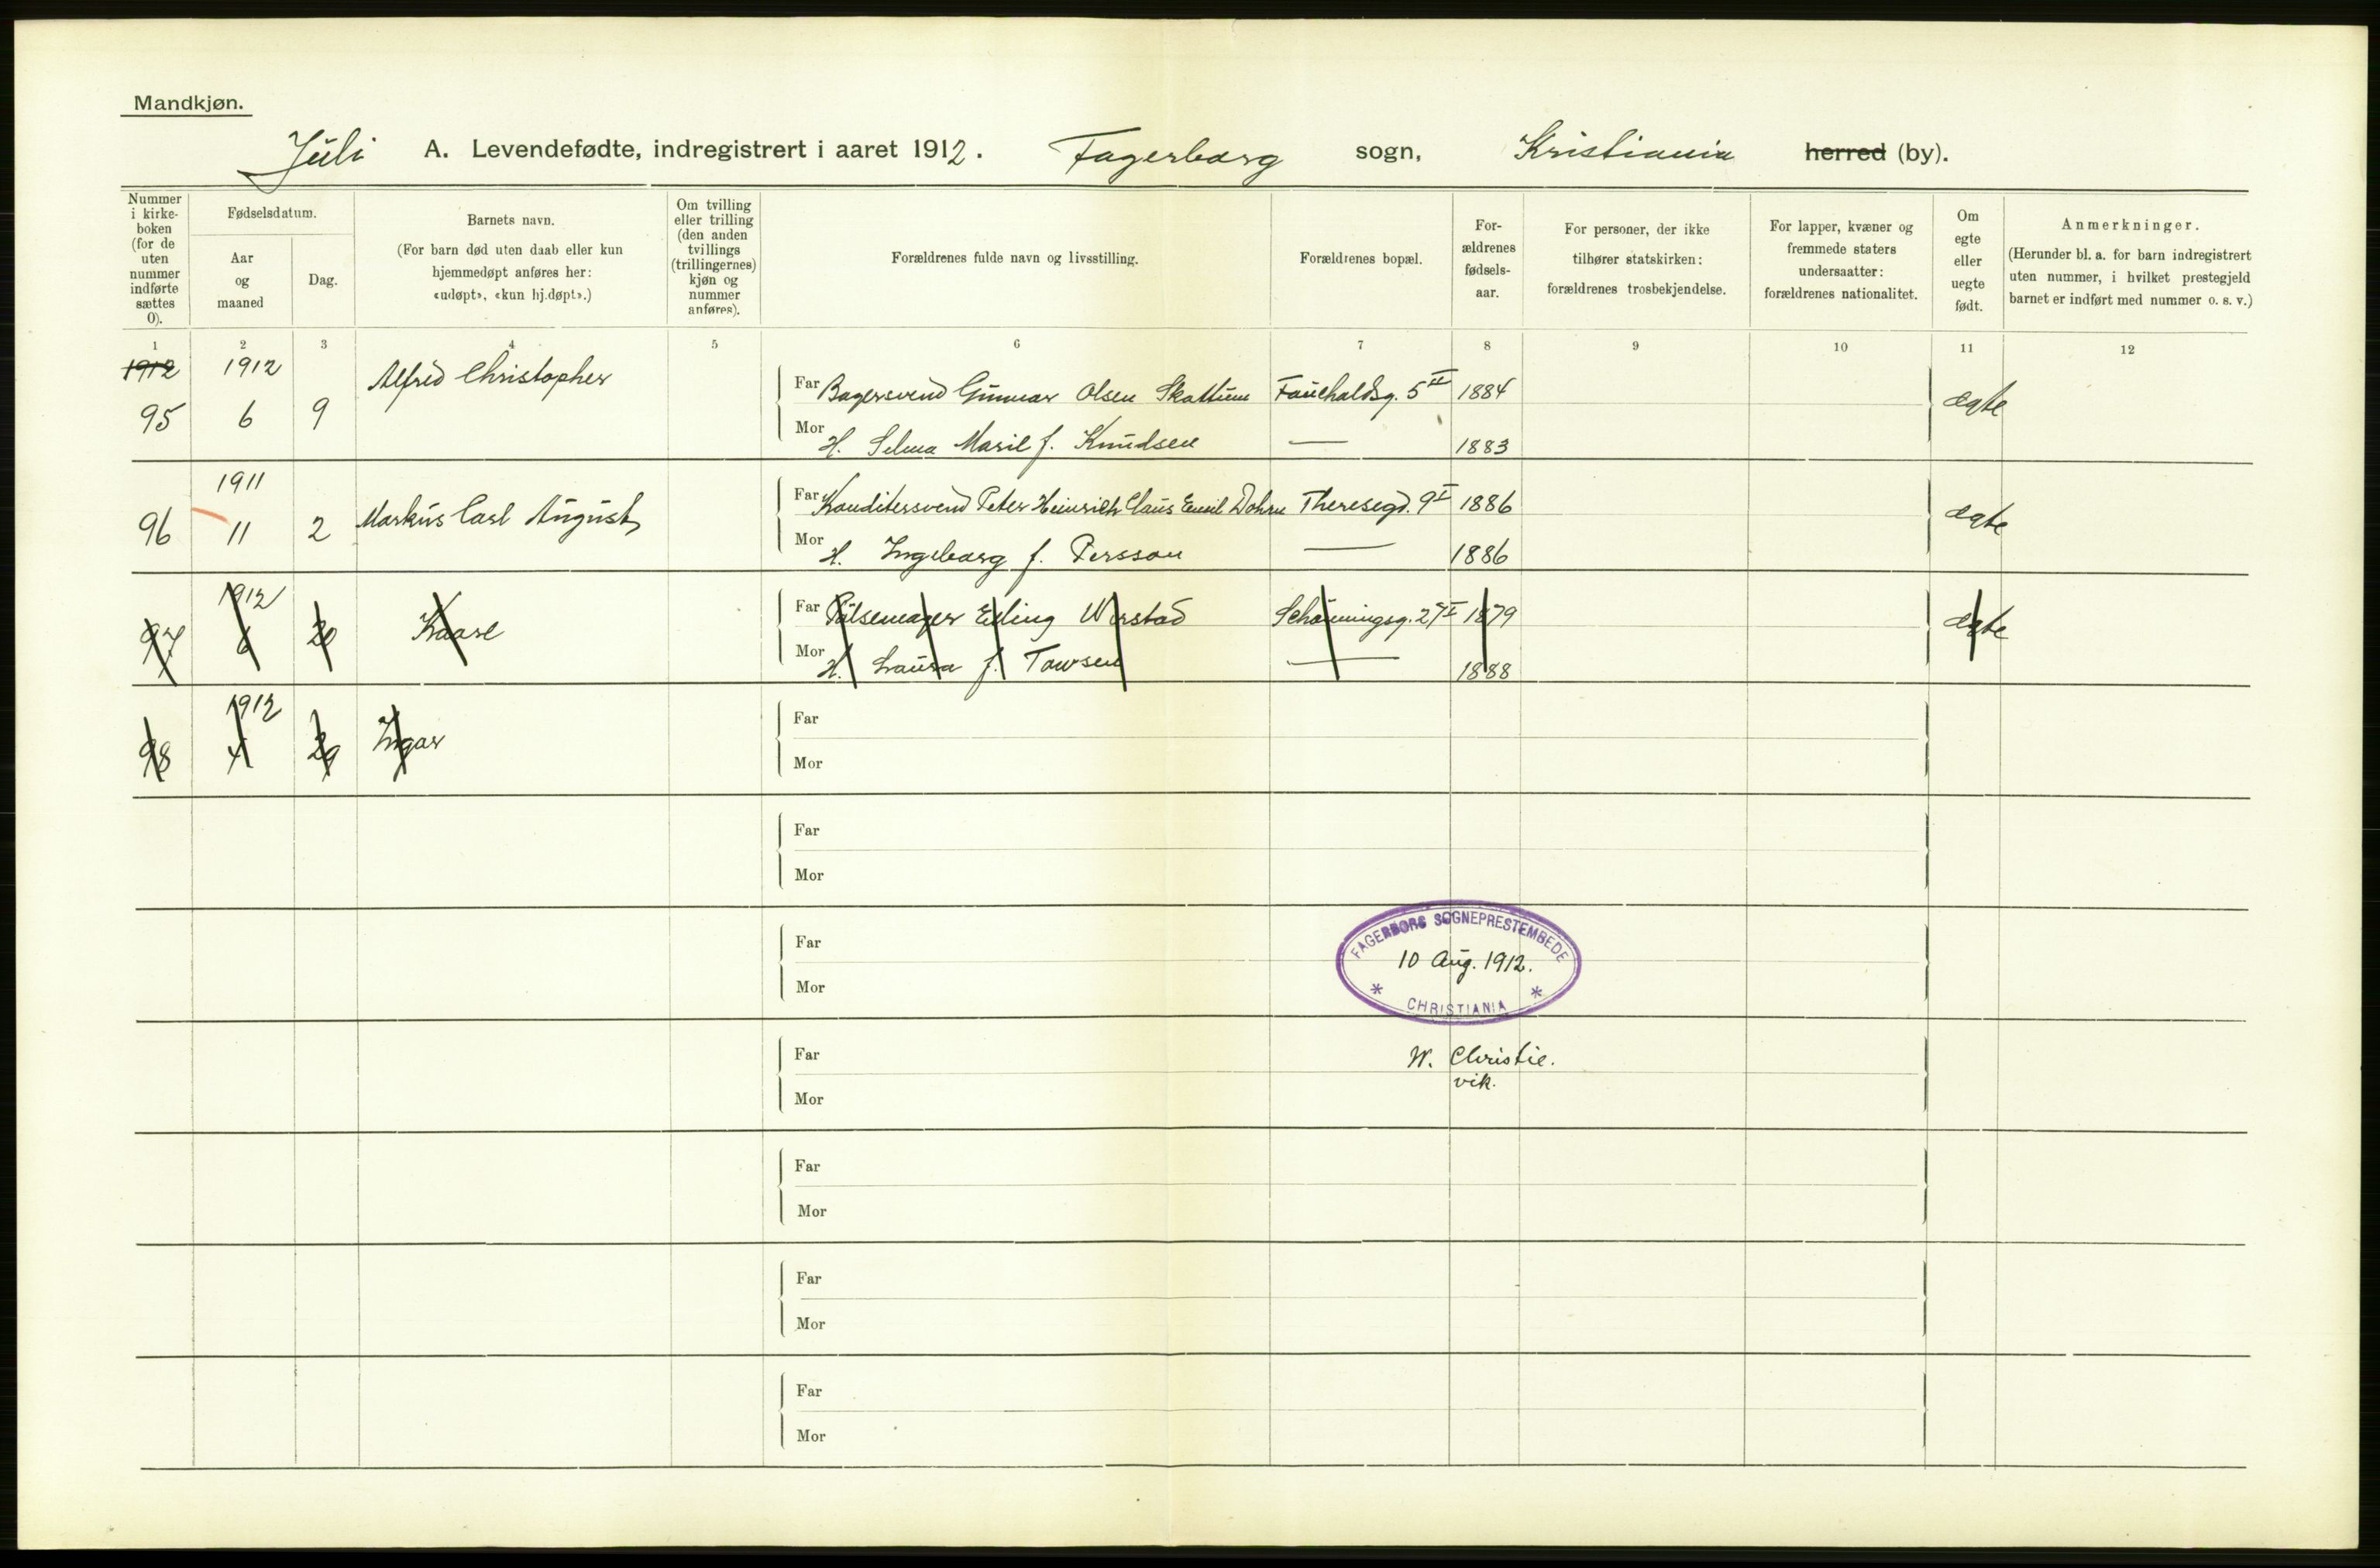 Mandkjøn.
Juli A. Levendefødte, indregistrert i aaret 1912. Fagerborg sogn, Kristiania herred (by).
Nummer i kirke-boken (for de uten nummer indførte sættes 0).
Fødselsdatum.
Aar og maaned
Dag.
Barnets navn.
(For barn død uten daab eller kun hjemmedøpt anføres her: «udøpt», «kun hj.døpt».)
Om tvilling eller trilling (den anden tvillings (trillingernes) kjøn og nummer anføres).
Forældrenes fulde navn og livsstilling.
Forældrenes bopæl.
For-ældrenes fødsels-aar.
For personer, der ikke tilhører statskirken: forældrenes trosbekjendelse.
For lapper, kvæner og fremmede staters undersaatter: forældrenes nationalitet.
Om egte eller uegte født.
Anmerkninger.
(Herunder bl. a. for barn indregistrert uten nummer, i hvilket prestegjeld barnet er indført med nummer o. s. v.)
1 2 3 4 5 6 7 8 9 10 11 12
1912 1912
95 6 9 Alfred Christopher Far Bagersvend Gunnar Olsen Skattum Fauchaldsg. 5 II 1884 ægte
Mor H. Selma Marie f. Knudsen — 1883
1911
96 11 2 Markus Carl August Far Konditersvend Peter Heinrich Claus Emil Dohrn Theresegd. 9 I 1886 ægte
Mor H. Ingeborg f. Persson — 1886
1912
97 6 20 Kaare Far Pølsemager Erling Werstad Schøningsg. 27 I 1879 ægte
Mor H. Laura f. — 1888
1912
98 4 29 Ingar Far
Mor
Far
Mor
Far
Mor
FAGERBORG SOGNEPRESTEMBEDE
10 Aug. 1912.
* CHRISTIANIA *
Far W. Christie.
vik.
Mor
Far
Mor
Far
Mor
Far
Mor